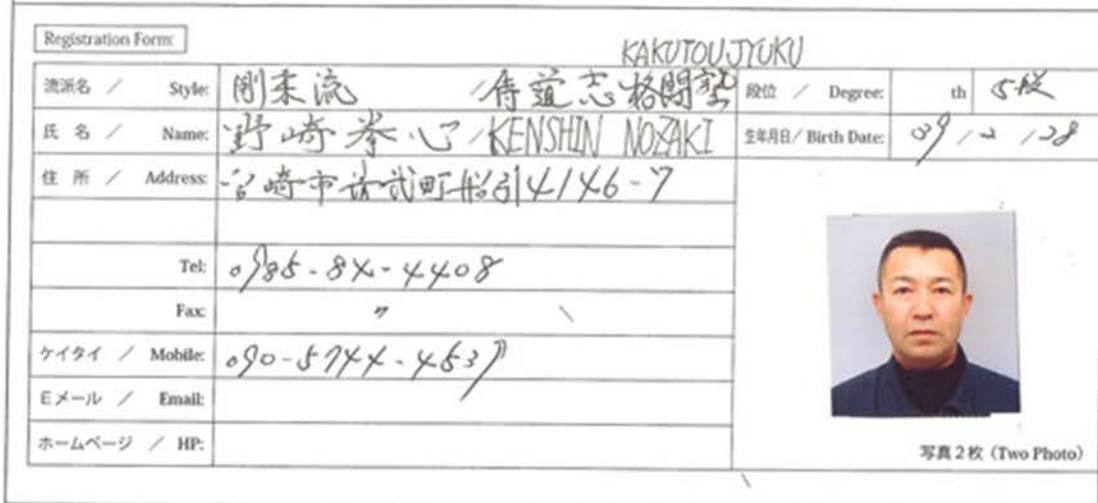 Registration Form:
KAKUTOUJYUKU
流派名 / Style: 剛柔流 / 侍道志格闘塾 段位 / Degree: th 5段
氏 名 / Name: 野崎拳心 / KENSHIN NOZAKI 生年月日/ Birth Date: 39 / 2 / 28
住 所 / Address: 宮崎市清武町船引4146-7
Tel: 0985-84-4408
Fax: 〃
ケイタイ / Mobile: 090-5744-4537
Eメール / Email:
ホームページ / HP:
写真2枚 (Two Photo)